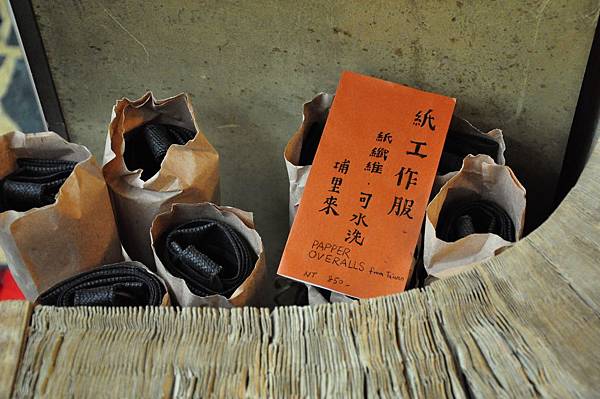 紙工作服
紙纖維.可水洗
埔里來
PAPPER
OVERALLS from Taiwan
NT 850-